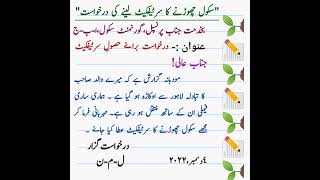 "سکول چھوڑنے کا سرٹیفکیٹ لینے کی درخواست"
بخدمت جناب پرنسپل، گورنمنٹ سکول، ا۔ب۔ج
عنوان :- درخواست برائے حصولِ سرٹیفکیٹ
جناب عالی!
مودبانہ گزارش ہے کہ میرے والد صاحب
کا تبادلہ لاہور سے اوکاڑہ ہو گیا ہے۔ ہماری ساری
فیملی ان کے ساتھ منتقل ہو رہی ہے۔ مہربانی فرما کر
مجھے سکول چھوڑنے کا سرٹیفکیٹ عطا کیا جائے۔
درخواست گزار
ل-م-ن
۴ دسمبر، ۲۰۲۲